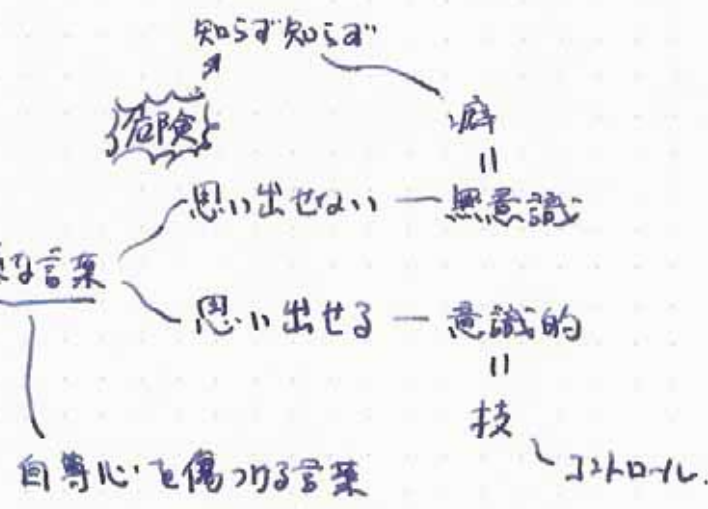 知らず知らず
危険
癖
||
思い出せない ― 無意識
な言葉
思い出せる ― 意識的
||
技
コントロール.
自尊心を傷つける言葉